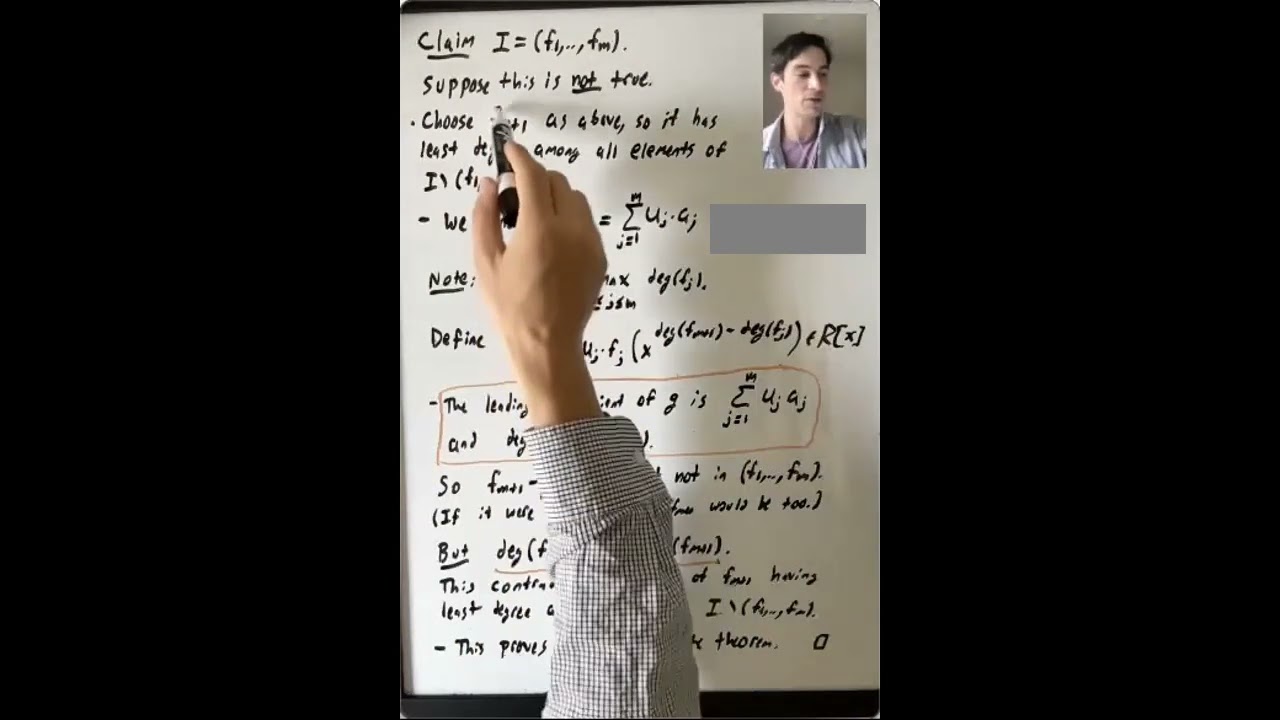 Claim I = (f₁,..,fₘ).
Suppose this is not true.
• Choose as above, so it has
least among all elements of
I \ (f₁
- We = ∑_{j=1}^{m} uⱼ·aⱼ
Note: max deg(fⱼ).
≤j≤m
Define uⱼ·fⱼ (x^{deg(fₘ₊₁) - deg(fⱼ)}) ∈ R[x]
- The leading of g is ∑_{j=1}^{m} uⱼaⱼ
and
So fₘ₊₁ - not in (f₁,..,fₘ).
(If it were would be too.)
But deg(f (fₘ₊₁).
This of fₘ₊₁ having
least degree I \ (f₁,..,fₘ).
- This proves theorem. □